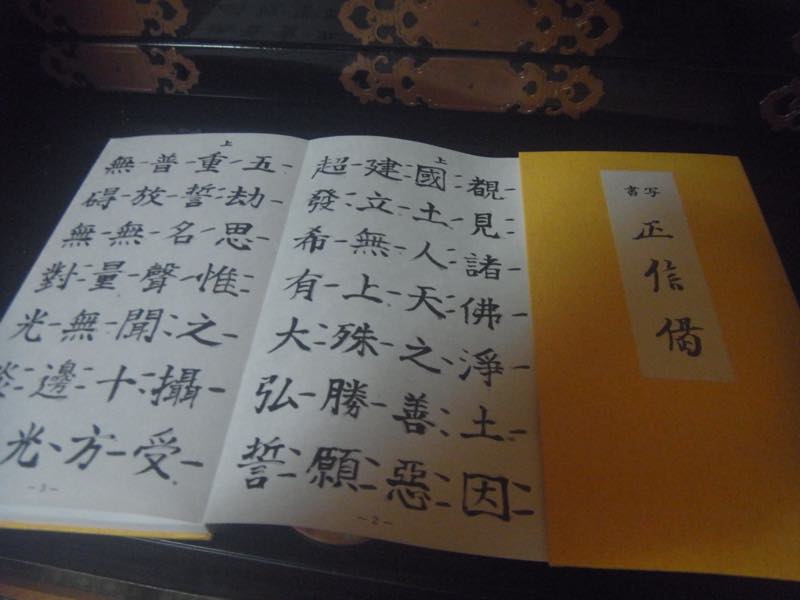 書写
正信偈
覩見諸佛淨土因
上
國土人天之善惡
建立無上殊勝願
超發希有大弘誓
-2-
五劫思惟之攝受
上
重誓名聲聞十方
普放無量無邊光
無碍無對光炎光
-3-